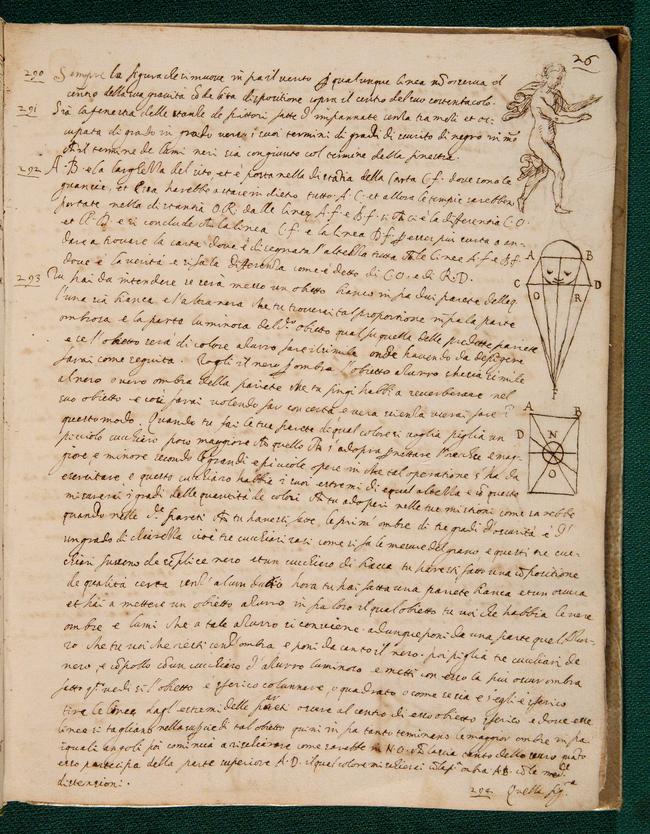 26
290 Sempre la figura che si muove in fra il vento p qualunque linea nō osserva il
centro della sua gravità cō debita dispositione sopra il centro del suo sostentacolo.
291 Sia la fenestra delle stanze de pittori fatte d'impannate senza tramezi et oc-
cupata di grado in grado verso i suoi termini di gradi di scurito di negro in mō
che il termine de lumi neri sia congiunto col termine della finestra.
292 A. B. è la larghezza del sito, et è posta nella distātia della Carta C. f. dove sono le
guancie, et essa harebbe a stare in dietro tutto A C. et allora le tempie sarebbon
portate nella distantia O. R. dalle linee A. f. e B. f. si chè ci è la differentia C. O.
et R. D. e si conclude che la linea C. f. e la linea D. f. p esser più curta a an-
dare a trovare la carta dove è disegnata l'altezza tutta che le linee A. f. e B. f.
dove è la verità e si fa la differenza come è detto di C. O. e di R. D.
293 Tu hai da intendere se serà messo un obietto bianco in fra dui pariete delle q
l'una sia bianca, e l'altra nera che tu troverai tal proportione in fra la parte
ombrosa e la parte luminosa del dº obietto qual fu quella delle predette pariete
e se l'obietto serà di colore azurro farà il simile onde havendo da depingere
farai come seguita. Togli il nero p ombrar l'obietto azurro che sia simile
al nero overo ombra della pariete che tu fingi habbi a reverberare nel
tuo obietto e così farai volendo far con certa e vera scienza userai fare ī
questo modo. Quando tu fai le tue parete di qual colore si voglia piglia un
piccolo cucchiaro poco maggiore che quello che s'adopra p nettare l'orecchie e mag-
giore, e minore secondo le grandi e piccole opere in che tal operatione s'hà da
essercitare, e questo cucchiaro habbia i suoi estremi di equal altezza e cō questo
misurerai i gradi delle quantità de colori che tu adoperi nelle tue mistioni come sarebbe
quando nelle dº pareti che tu havessi fatto le prime ombre di tre gradi d'oscurità e d'
un grado di chiarezza cioè tre cucchiari rasi come si fa le mesure del grano, e questi tre cuc-
chiari fussino de sēplice nero et un cucchiaro di biacca tu haresti fatto una cōpositione
de qualità certa senz'alcun dubio hora tu hai fatta una pariete bianca et un oscura
et hai a mettere un obietto azurro in fra loro il qual obietto tu voi che habbia la vera
ombra e lumi che a tale azurro si conviene adunque poni da una parte quel azur-
ro che tu voi che resti senz'ombra e poni da canto il nero poi piglia tre cucchiari de
nero, e cōpollo cō un cucchiaro d'azurro luminoso e metti con esso la più oscura ombra
fatto qº vedi se l'obietto è sferico colunnare, o quadrato o come se sia e s'egli è sferico
tira le linee dagl'estremi delle pareti oscure al centro di esso obietto sferico e dove esse
linee si tagliano nella superficie di tal obietto quivi in fra tanto terminano le maggior ombre in fra
equali angoli poi comincia a rischiarare come sarebbe in N. O. che lascia tanto dello scuro quāto
esso participa della parte superiore A. D. il qual colore mischierai cō la pª ombra A. B. cō le medē
distentioni.
294 Quella figª
A B
C D
O R
F
A B
D
N
O